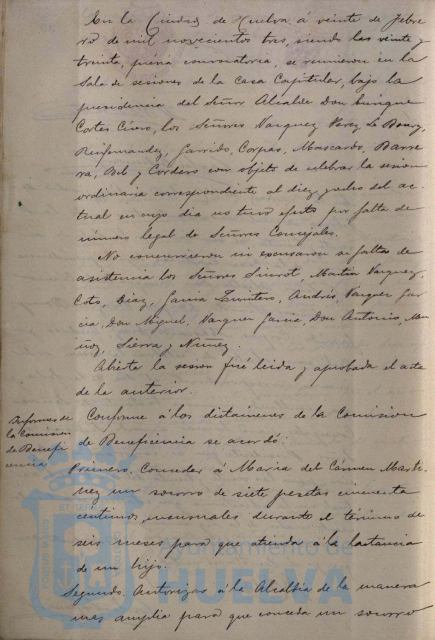 En la Ciudad de Huelva á veinte de Febre
ro de mil novecientos tres, siendo las veinte y
treinta, previa convocatoria, se reunieron en la
Sala de sesiones de la Casa Capitular, bajo la
presidencia del Señor Alcalde Don Enrique
Cortes, los Señores Vazquez Perez, Le Bourg,
Garrido, Corpas, Moscardo, Barre
ra, Bel y Cordero con objeto de celebrar la sesion
ordinaria correspondiente al diez y ocho del ac-
tual en cuyo dia no tuvo efecto por falta de
número legal de Señores Concejales.
No concurrieron ni excusaron su falta de
asistencia los Señores Martin Vazquez,
Coto, Diaz, Garcia Quintero, Andrés, Vazquez Gar
cia, Don Miguel, Vazquez Garcia, Don Antonio, Mu
ñoz, Sierra y Nuñez.
Abierta la sesion fué leida y aprobada el acta
de la anterior.
Informes de
la Comision
de Benefi
cencia
Conforme á los dictámenes de la Comision
de Beneficencia se acordó:
Primero. Conceder á Maria del Cármen Marti-
nez un socorro de siete pesetas cincuenta
céntimos mensuales durante el término de
seis meses para que atienda á la lactancia
de un hijo.
Segundo. Autorizar á la Alcaldia de la manera
mas amplia para que conceda un socorro
Ayuntamiento de
HUELVA